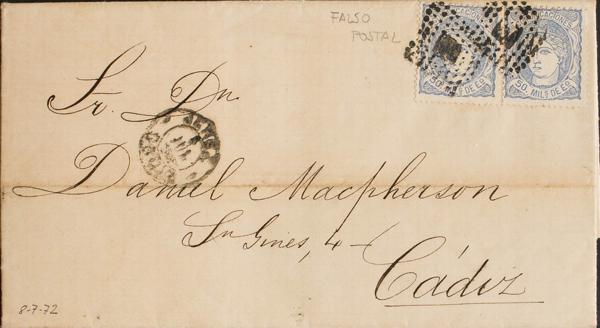 FALSO
POSTAL
COMUNICACIONES
50. MILS DE ES
50. MILS DE ES
Sr. Dn.
JEREZ
JUL
Daniel Macpherson
Sn Gines, 4
Cádiz
8-7-72